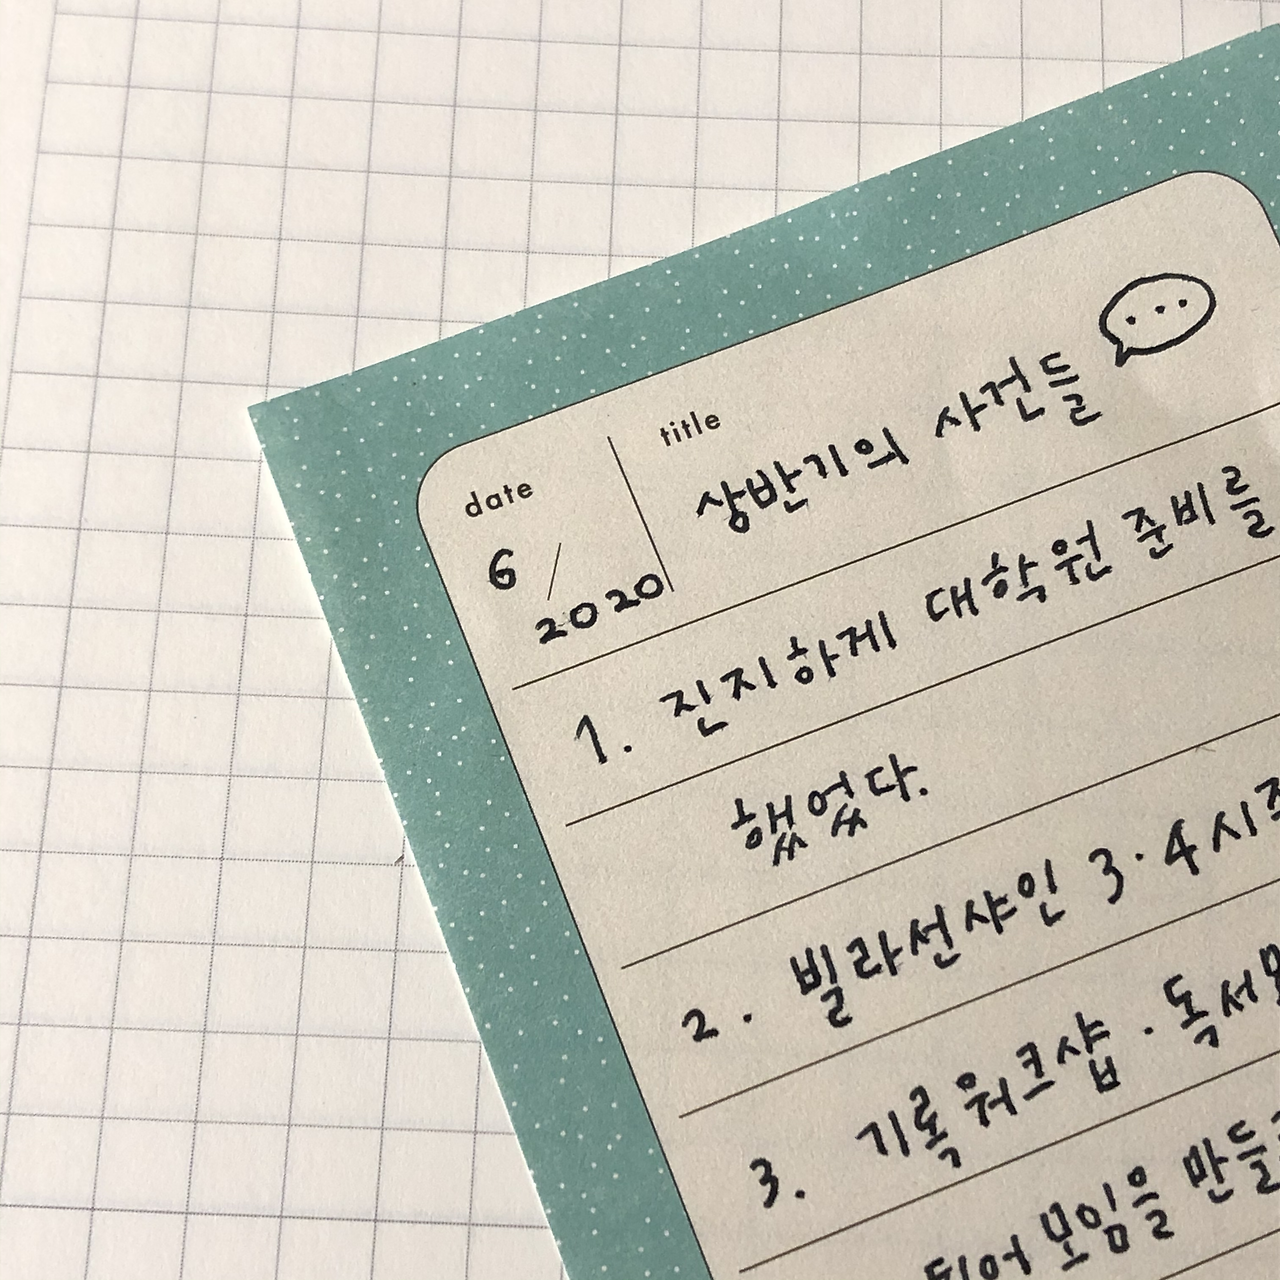 date
title
6 / 2020
상반기의 사건들
1. 진지하게 대학원 준비를
했었다.
2. 빌라선샤인 3·4시즌
3. 기록워크샵 · 독서모
모임을 만들